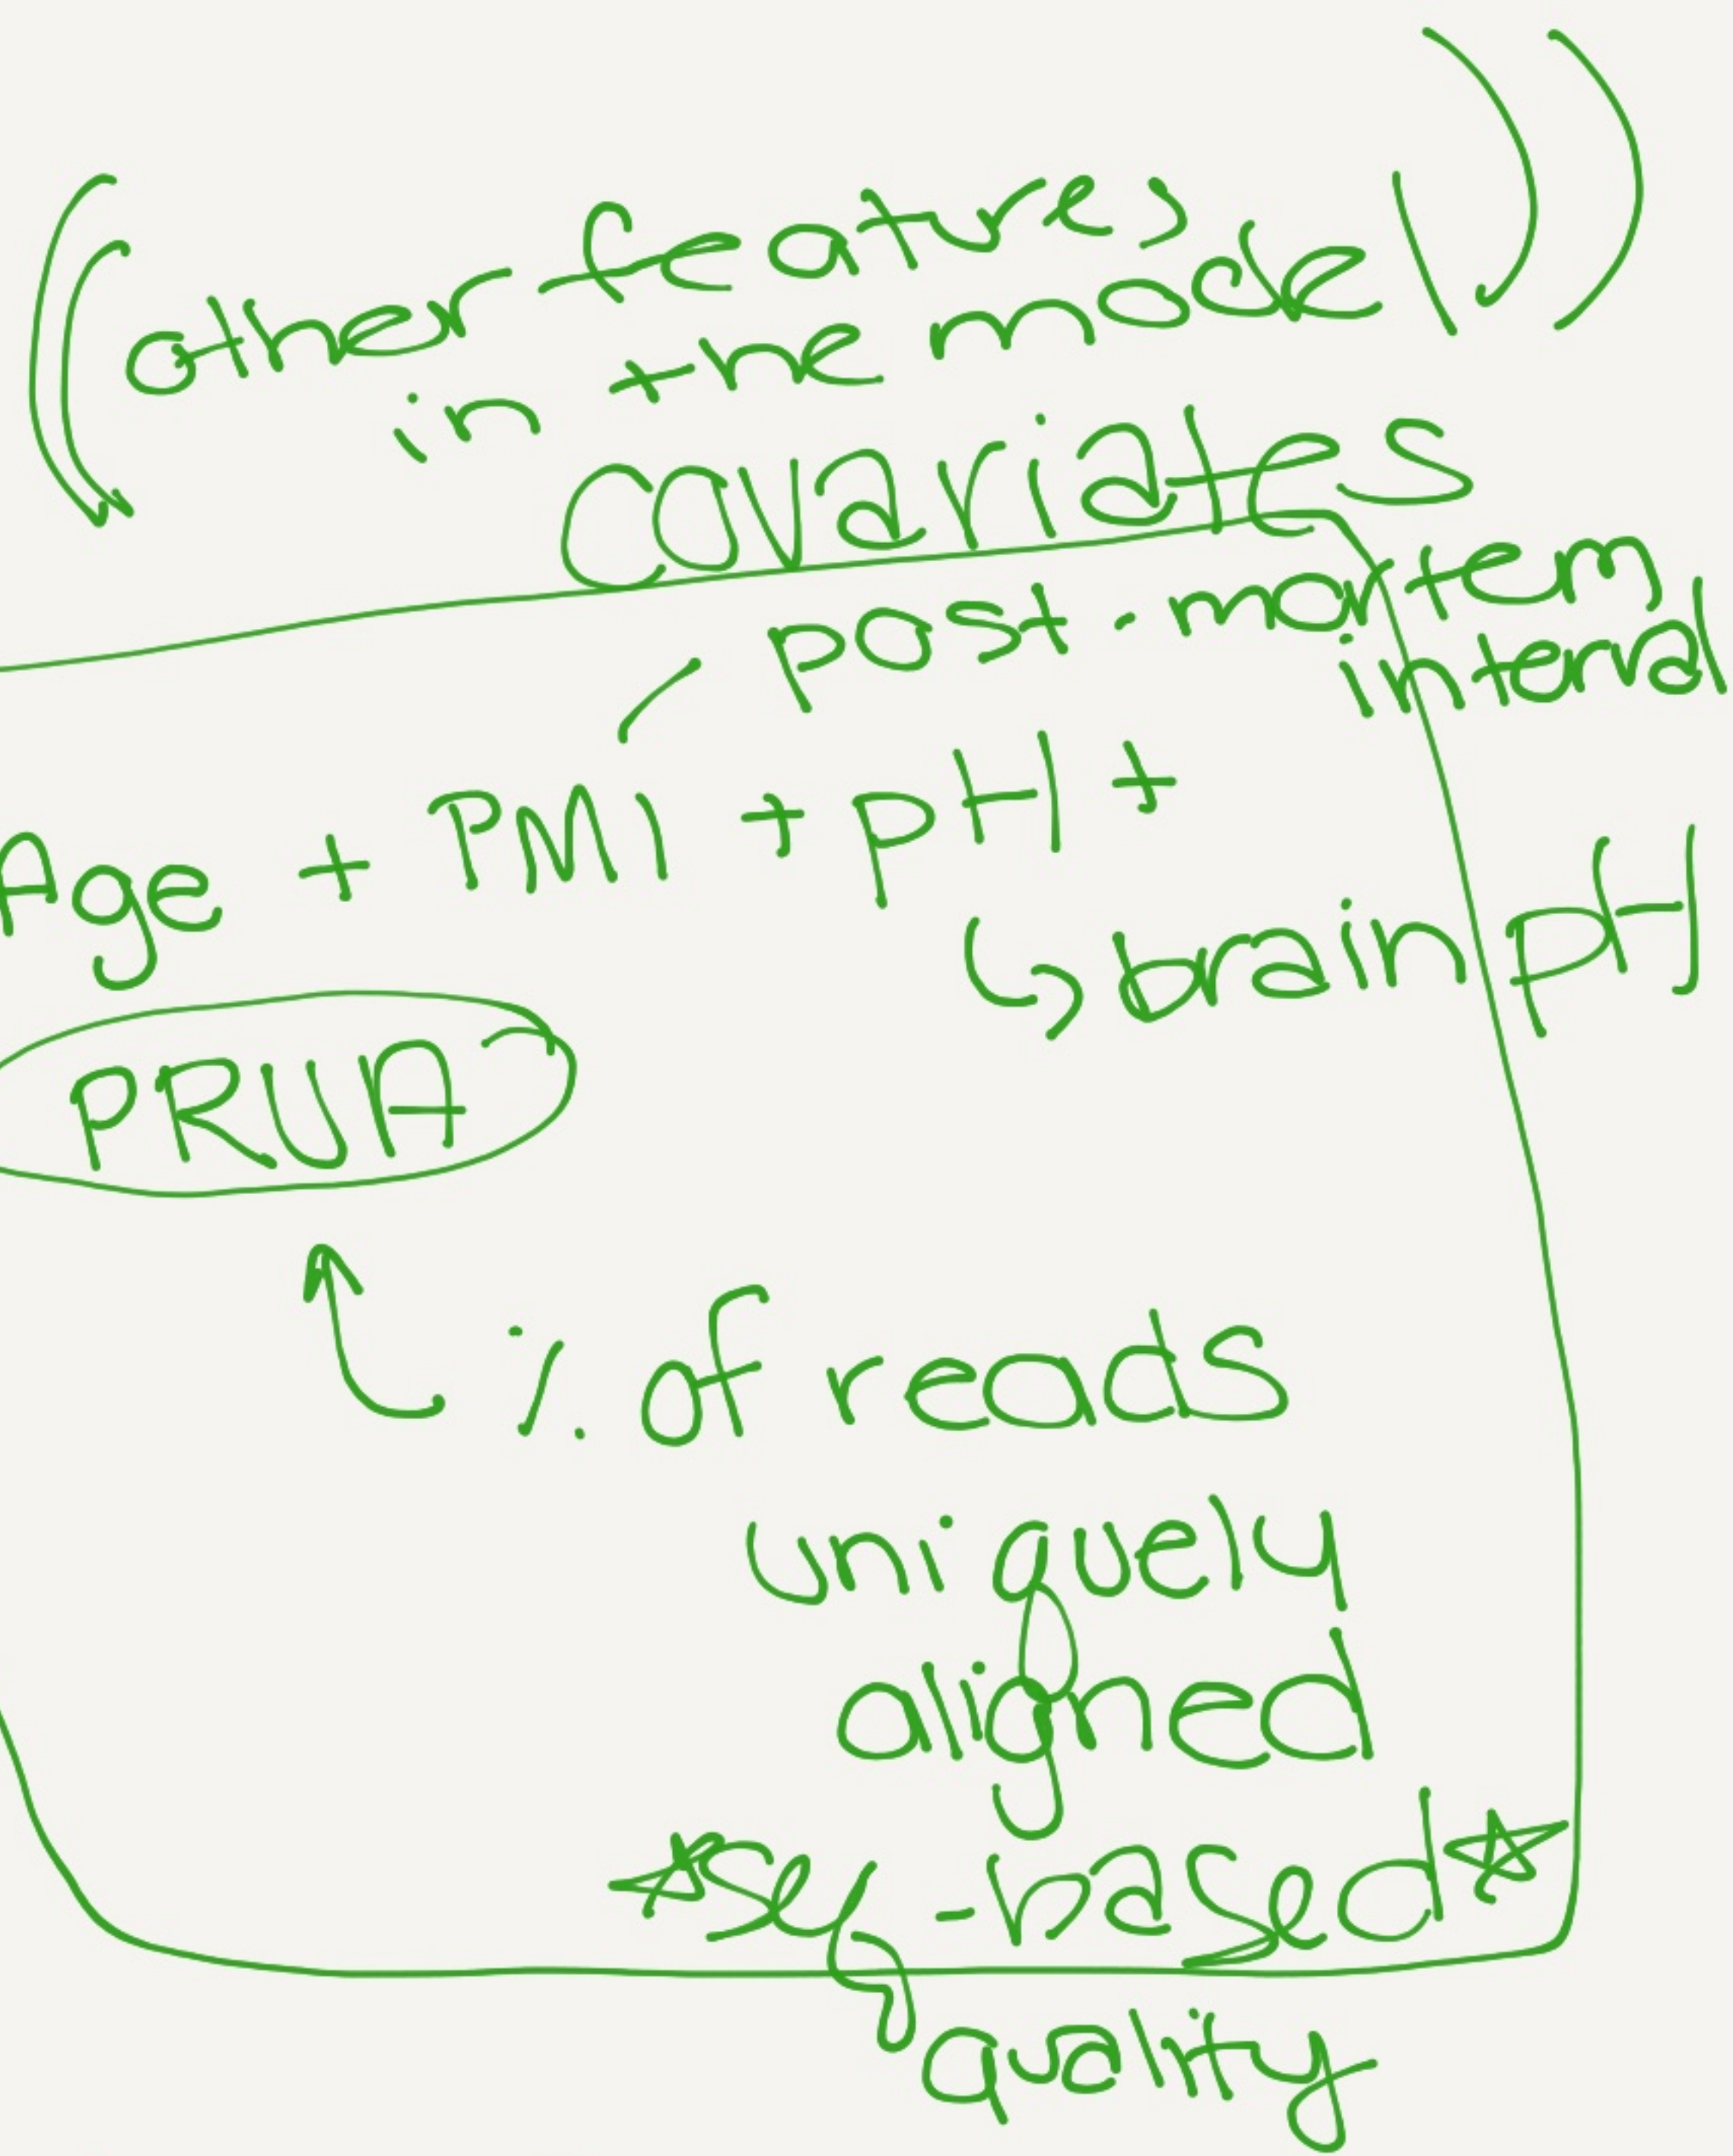 ((other features
in the model))
covariates
post-mortem
interval
Age + PMI + pH +
brain pH
PRUA
% of reads
uniquely
aligned
☆seq-based☆
quality